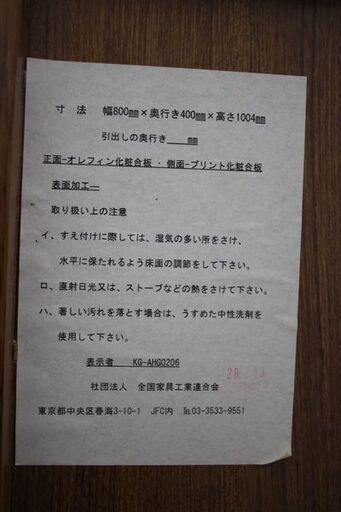 寸　法　幅800㎜×奥行き400㎜×高さ1004㎜
引出しの奥行き　　㎜
正面-オレフィン化粧合板 ・ 側面-プリント化粧合板
表面加工―
取り扱い上の注意
イ、すえ付けに際しては、湿気の多い所をさけ、
水平に保たれるよう床面の調節をして下さい。
ロ、直射日光又は、ストーブなどの熱をさけて下さい。
ハ、著しい汚れを落とす場合は、うすめた中性洗剤を
使用して下さい。
表示者　KG-AHG0206
社団法人　全国家具工業連合会
東京都中央区春海3-10-1　JFC内　℡03-3533-9551